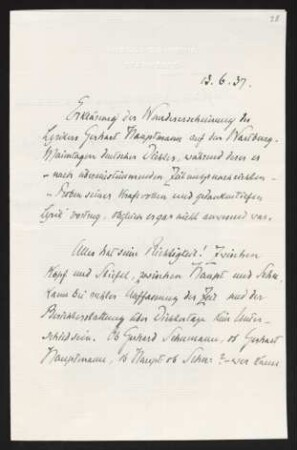 28
13. 6. 37.
Erklärung der Wundererscheinung des
Lyrikers Gerhart Hauptmann auf den Wartburg-
Maientagen deutscher Dichter, während derer er
– nach übereinstimmenden Zeitungsnachrichten –
– Proben seiner kraftvollen und gedanktiefen
Lyrik" vortrug, obgleich er gar nicht anwesend war.
Alles hat seine Richtigkeit! Zwischen
Kopf und Stiefel, zwischen Haupt und Schu
kann bei rechter Auffassung der Zeit und der
Berichterstattung über Dichtertage kein Unter-
schied sein. Ob Gerhard Schumann, ob Gerhart
Hauptmann, ob Haupt ob Schu? – wer kann